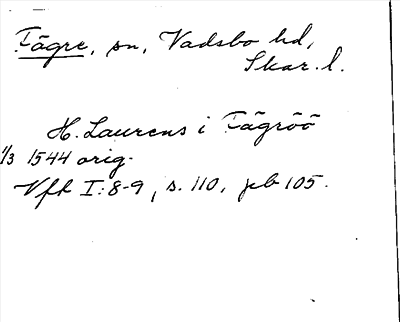 Fägre, sn, Vadsbo hd,
Skar. l.
H. Laurens i Fägröö
1/3 1544 orig.
Vft I:8-9, s. 110, jeb 105.